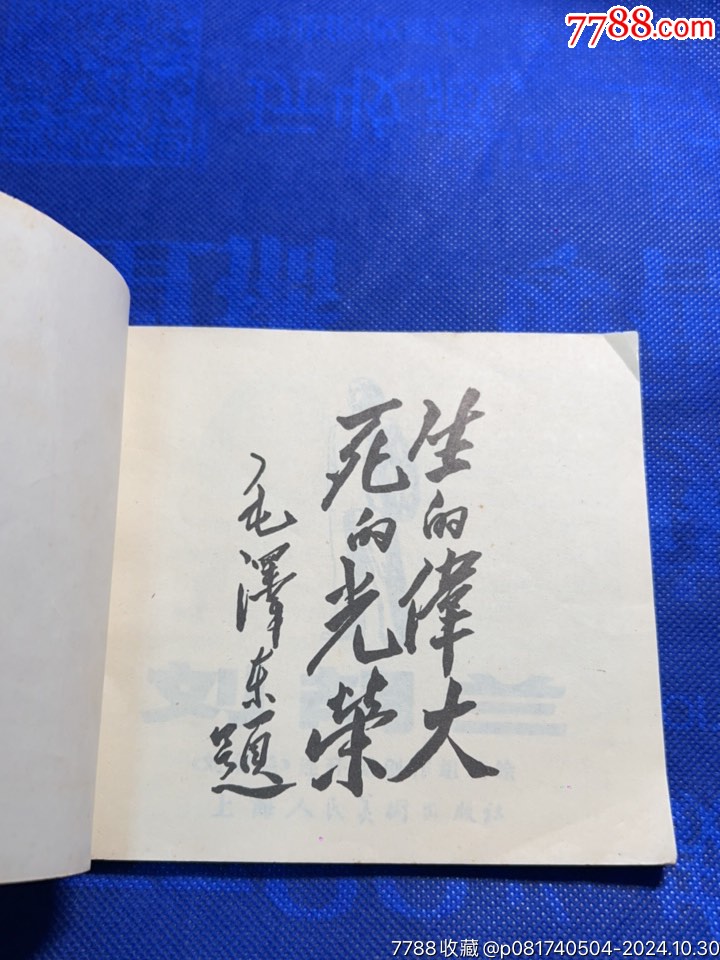 7788.com
生的偉大
死的光榮
毛澤东題
7788收藏@p081740504-2024.10.30